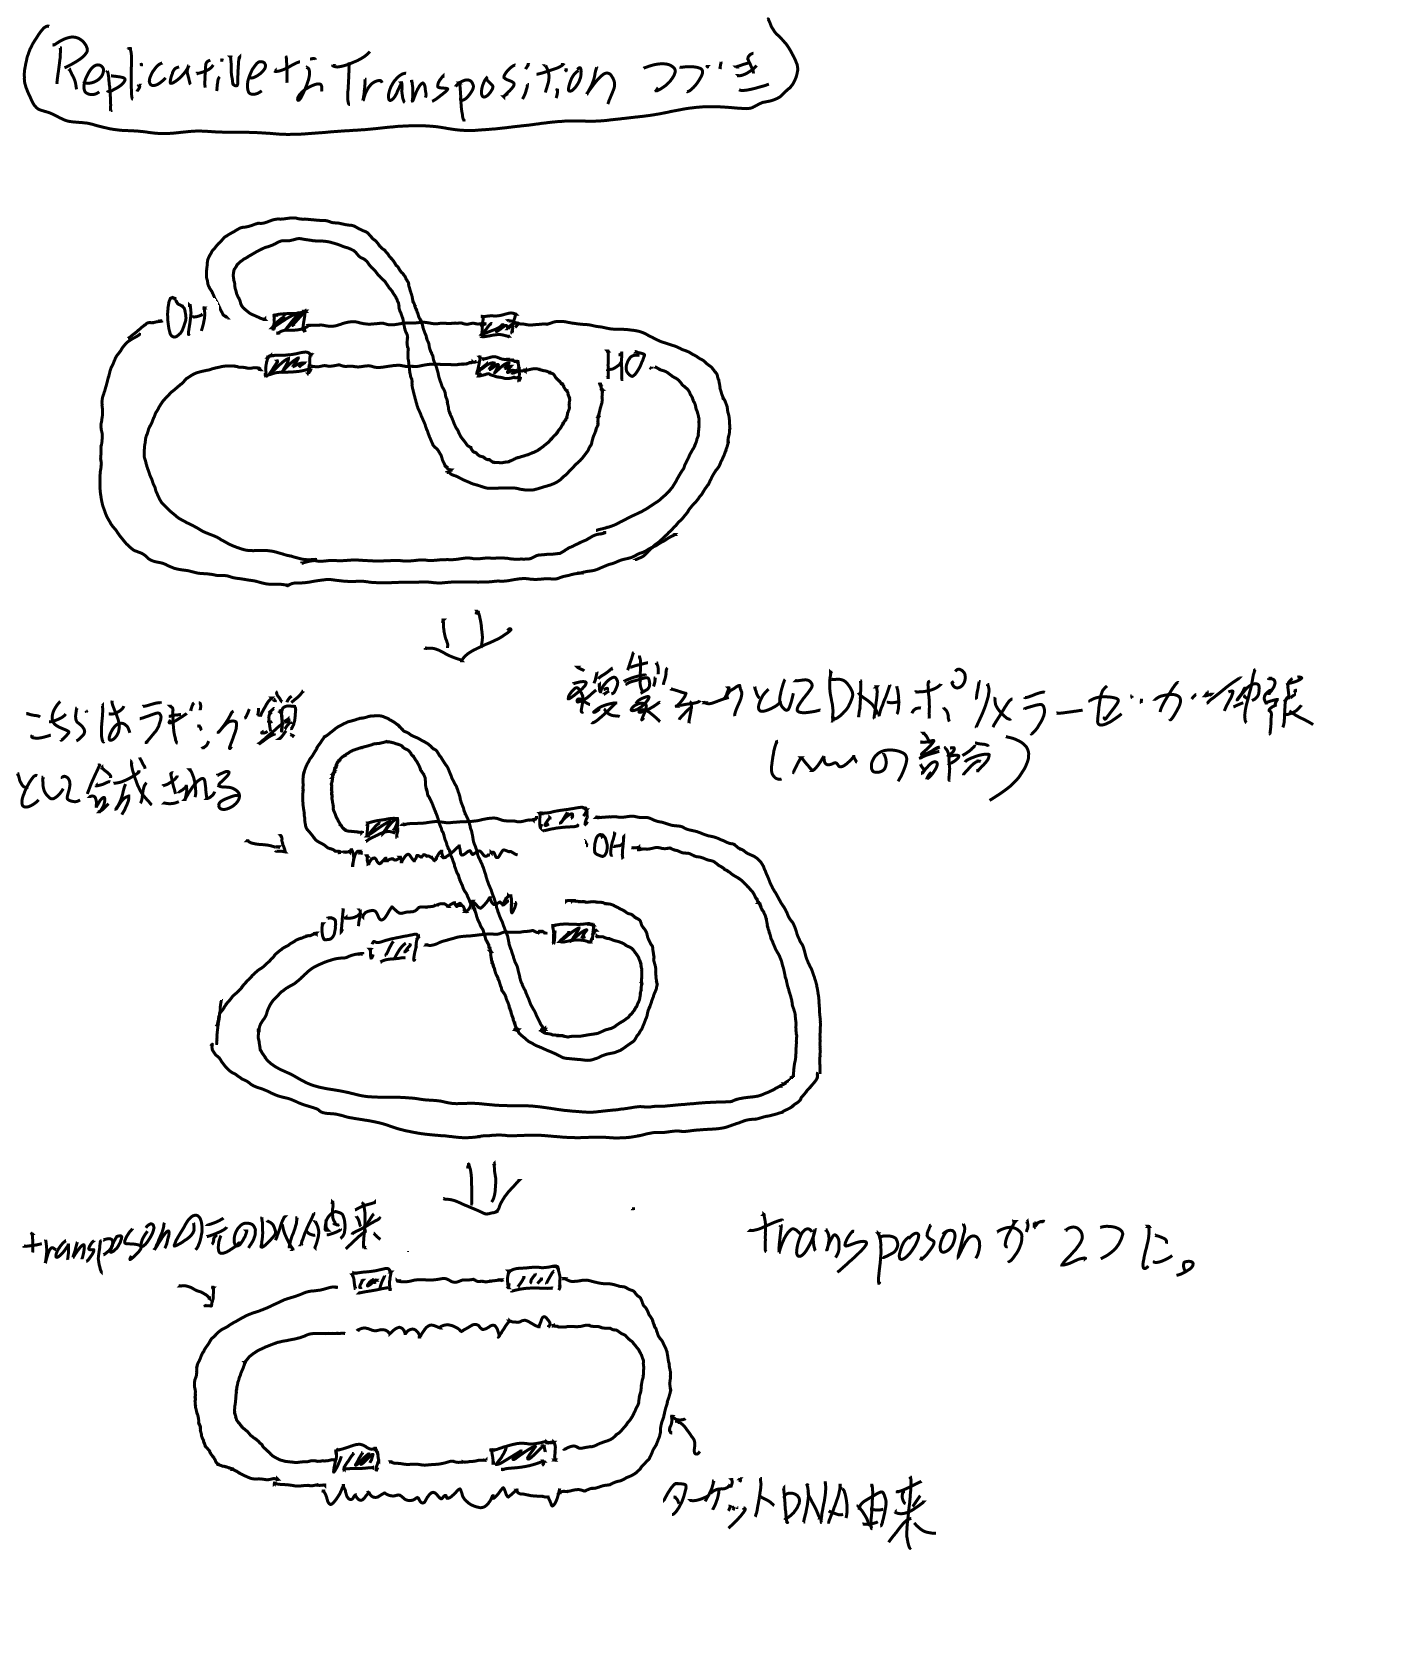 ReplicativeなTransposition つづき
OH
HO
複製フォークとしてDNAポリメラーゼが伸張
(〰の部分)
こちらはラギング鎖
として合成される
OH
OH
transposonの元のDNA由来
transposonが2つに。
ターゲットDNA由来